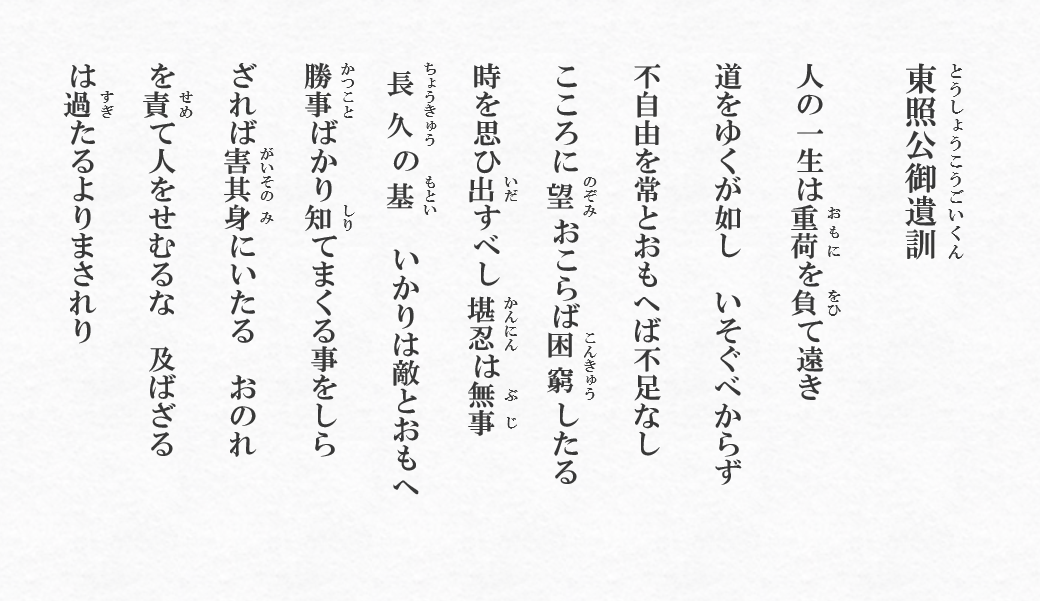 東照公御遺訓
とうしょうこうごいくん
人の一生は重荷を負て遠き
おもに
をひ
道をゆくが如し　いそぐべからず
不自由を常とおもへば不足なし
こころに望おこらば困窮したる
のぞみ
こんきゅう
時を思ひ出すべし堪忍は無事
いだ
かんにん
ぶじ
長久の基　いかりは敵とおもへ
ちょうきゅう
もとい
勝事ばかり知てまくる事をしら
かつこと
しり
ざれば害其身にいたる　おのれ
がいそのみ
を責て人をせむるな　及ばざる
せめ
は過たるよりまされり
すぎ